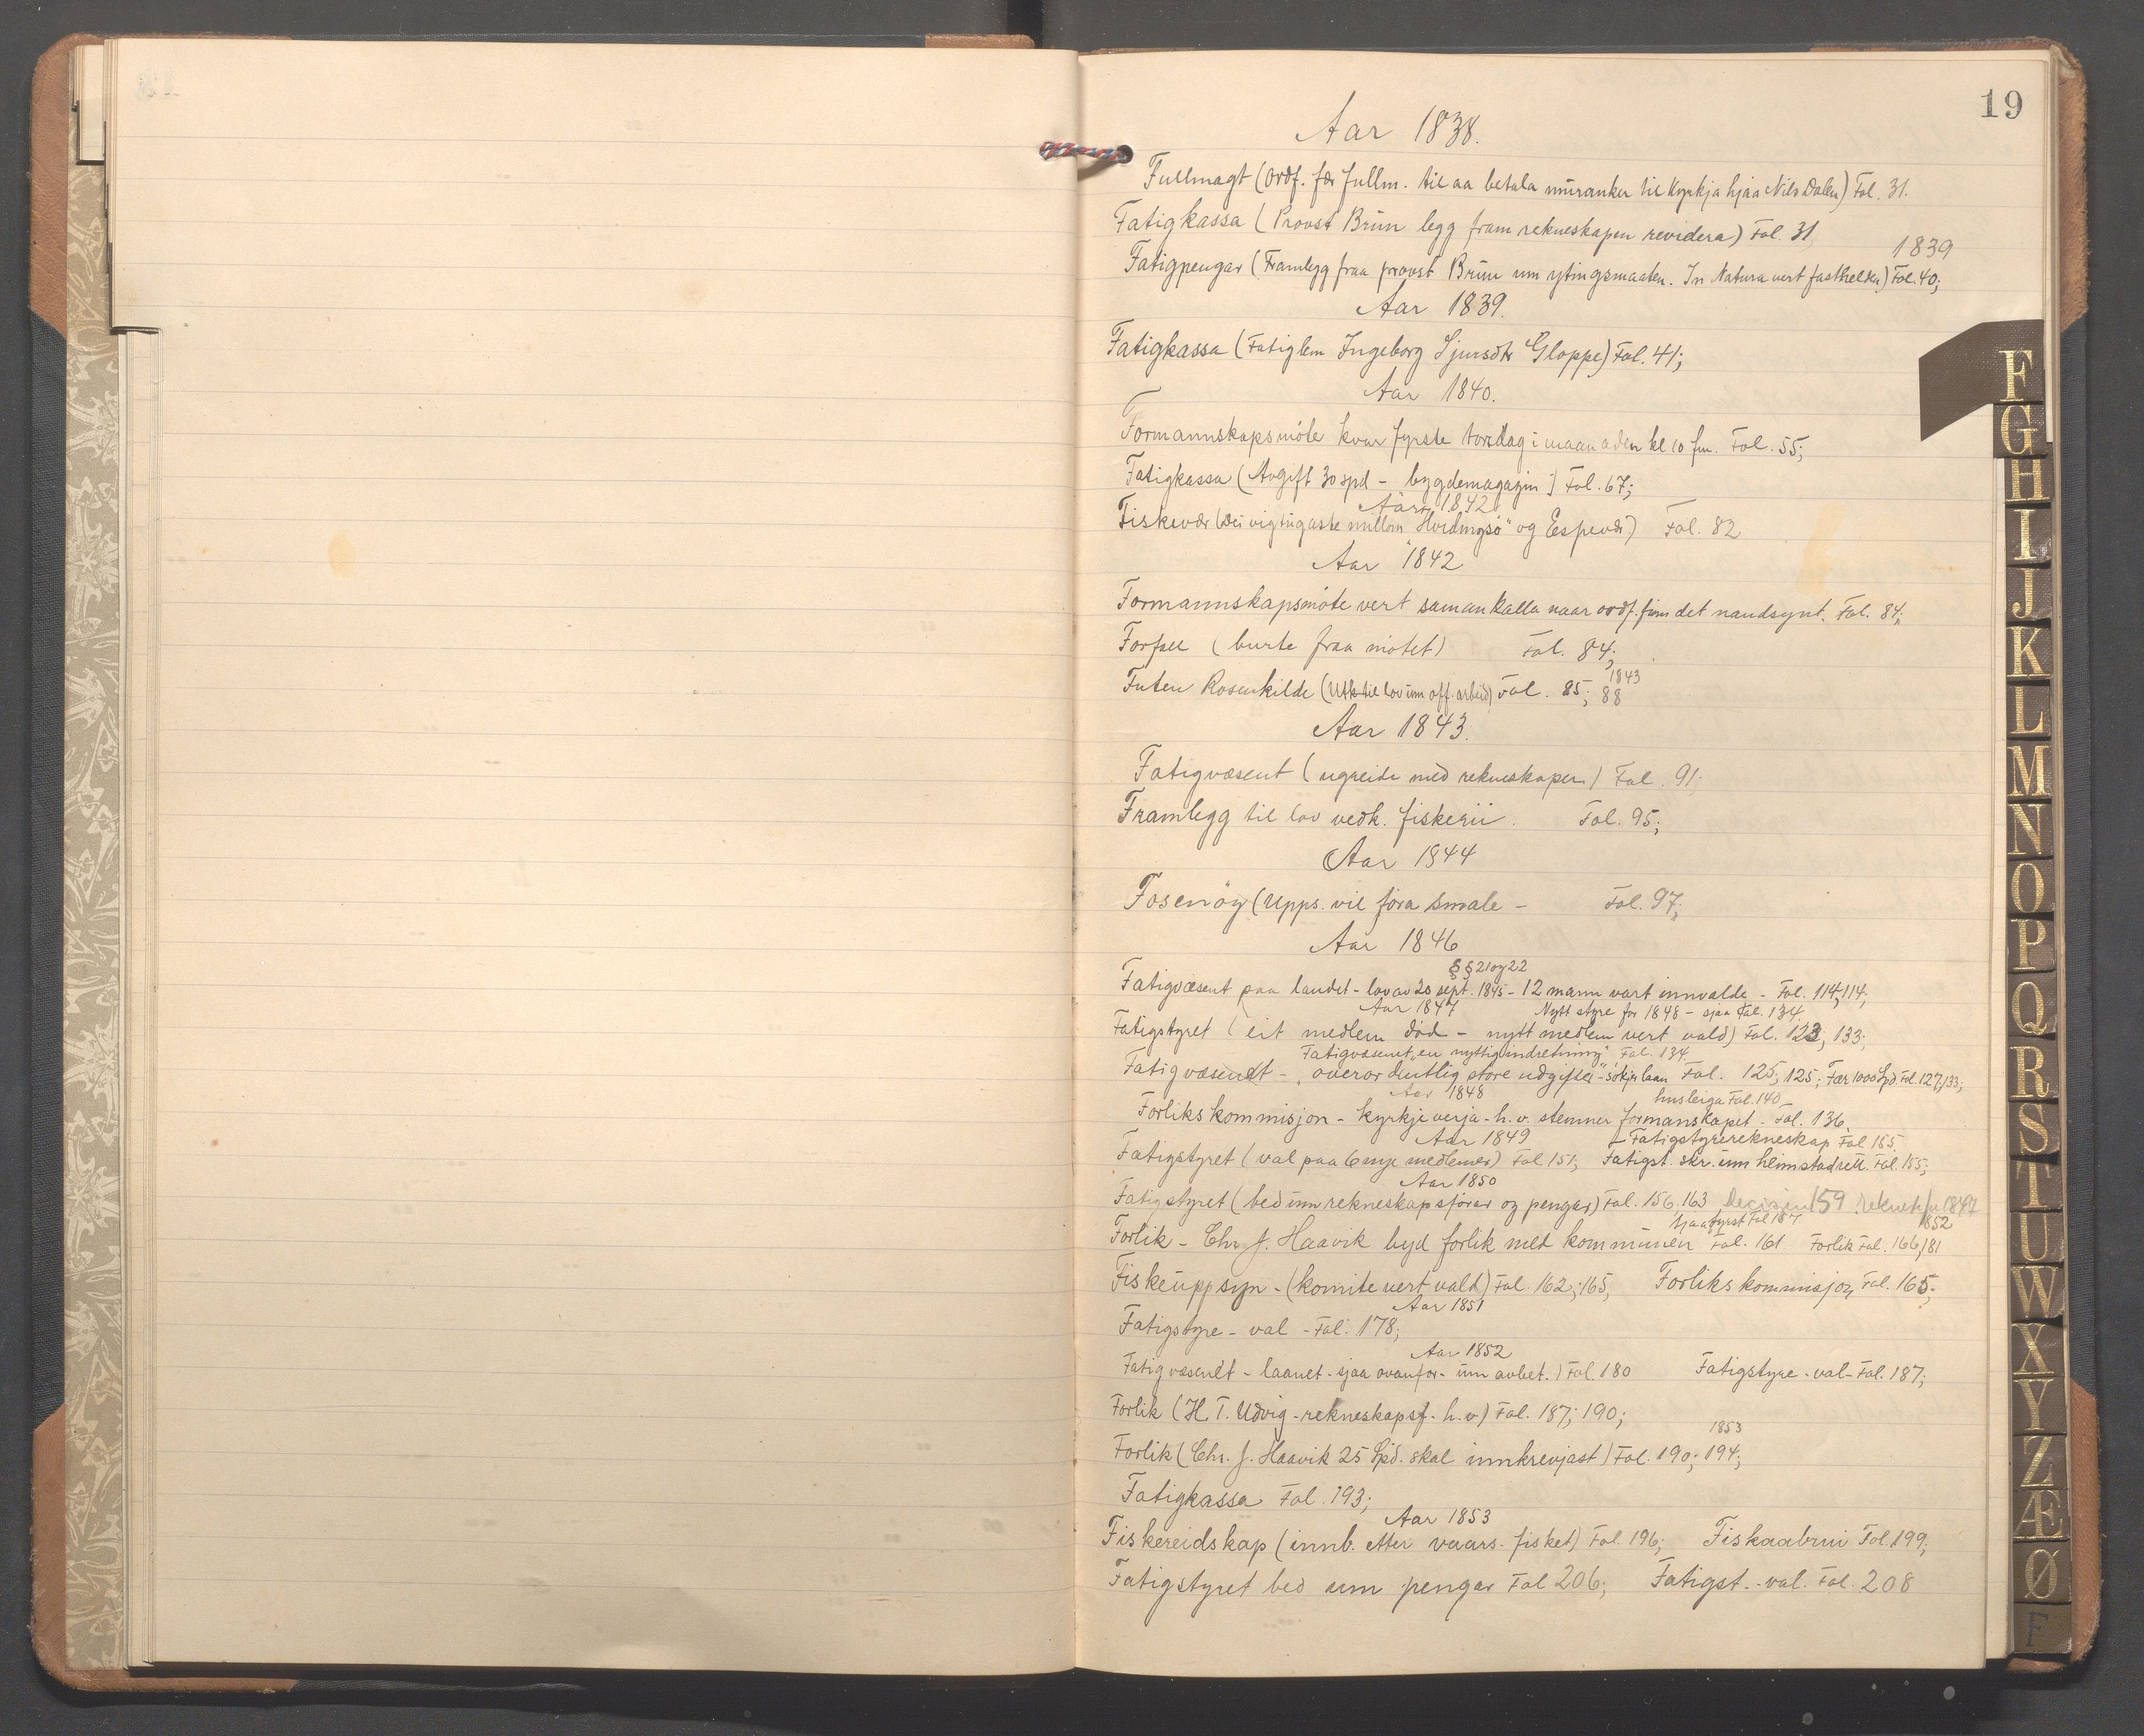 19
Aar 1838.
Fullmagt (Ordf. fær fullm. til aa betala muranker til Kyrkja hjaa Nils Dalen) Fol. 31.
Fatigkassa (Provst Brun legg fram rekneskapen revidera) Fol. 31
1839
Fatigpengar (Framlegg fraa provst Brun um ytingsmaaten. In Natura vert fasthelden) Fol. 40;
Aar 1839.
Fatigkassa (Fatiglem Ingeborg Sjursdtr Gloppe) Fol. 41;
Aar 1840.
Formannskapsmöte kvar fyrste torsdag i maanaden kl 10 fm. Fol. 55;
Fatigkassa (Avgift 30 spd - bygdemagazin) Fol. 67;
Aar 1842
Fiskevær (Dei vigtugaste millom Hvidingsö" og Espevær) Fol. 82
Aar 1842
Formannskapsmöte vert samankalla naar ordf. finn det naudsynt. Fol. 84;
Forfall (burte fraa mötet) Fol. 84;
1843
Futen Rosenkilde (Utk. til lov um off. arbeid) Fol. 85; 88
Aar 1843.
Fatigvæsent (ugreide med rekneskapen) Fol. 91;
Framlegg til lov vedk. fiskerii. Fol. 95;
Aar 1844
Fosenöy (Upps. vil föra smale - Fol. 97;
Aar 1846
§§ 21 og 22
Fatigvæsent paa landet - lov av 20 sept. 1845 - 12 mann vart innvalde - Fol. 114; 114;
Aar 1847 Nytt styre for 1848 - sjaa Fol. 134.
Fatigstyret (eit medlem död - nytt medlem vert vald) Fol. 123; 133;
Fatigvæsenet "en nyttig indretning" Fol. 134.
Fatigvæsenet - "overordentlig store udgifter" - sökjer laan Fol. 125; 125; Fær 1000 Spd. Fol. 127; 133;
Aar 1848 husleiga Fol. 140
Forlikskommisjon - kyrkjeverja - h. v. stemner formanskapet - Fol. 136.
Aar 1849 - Fatigstyrerekneskap Fol 155
Fatigstyret (val paa 6 nye medlemer) Fol 151; Fatigst. skr. um heimstadrett. Fol. 155;
Aar 1850
Fatigstyret (bed um rekneskapsförar og pengar) Fol. 156, 163 Decisjon 159 reknesk. fr 1847
sjaa fyrst Fol 157 1852
Forlik - Chr. J. Haavik byd forlik med kommunen Fol. 161 Forlik Fol. 166; 181
Fiskeuppsyn - (komite vert vald) Fol. 162; 165; Forlikskommisjon Fol. 165;
Aar 1851
Fatigstyre - val - Fol. 178;
Aar 1852
Fatigvæsendt - laanet - sjaa ovanfor - um avbet.) Fol. 180 Fatigstyre - val - Fol. 187;
Forlik (H. T. Udvig - rekneskapsf. h. v) Fol. 187; 190;
1853
Forlik (Chr. J. Haavik 25 Spd. skal innkrevjast) Fol. 190; 194;
Fatigkassa Fol. 193;
Aar 1853
Fiskereidskap (innb. etter vaars-fisket) Fol. 196; Fiskaabrui Fol. 199;
Fatigstyret bed um pengar Fol 206; Fatigst. - val. Fol. 208
F
G
H
I
J
K
L
M
N
O
P
Q
R
S
T
U
W
X
Y
Z
Æ
Ø
F